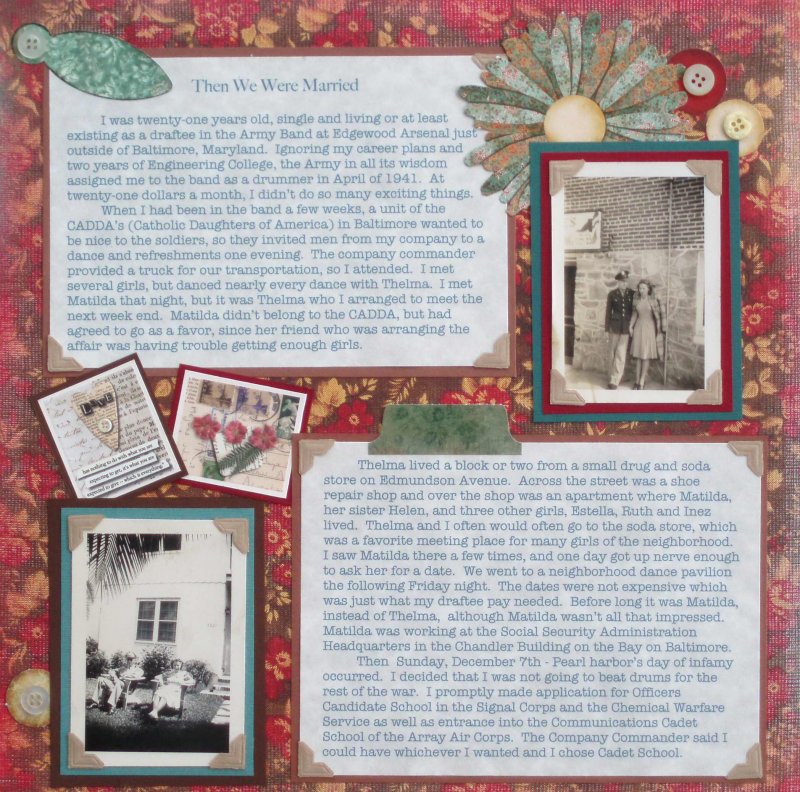 Then We Were Married
I was twenty-one years old, single and living or at least
existing as a draftee in the Army Band at Edgewood Arsenal just
outside of Baltimore, Maryland. Ignoring my career plans and
two years of Engineering College, the Army in all its wisdom
assigned me to the band as a drummer in April of 1941. At
twenty-one dollars a month, I didn't do so many exciting things.
When I had been in the band a few weeks, a unit of the
CADDA's (Catholic Daughters of America) in Baltimore wanted to
be nice to the soldiers, so they invited men from my company to a
dance and refreshments one evening. The company commander
provided a truck for our transportation, so I attended. I met
several girls, but danced nearly every dance with Thelma. I met
Matilda that night, but it was Thelma who I arranged to meet the
next week end. Matilda didn't belong to the CADDA, but had
agreed to go as a favor, since her friend who was arranging the
affair was having trouble getting enough girls.
LOVE
has nothing to do with what you are
expecting to get, it's what you are
expected to give -- which is everything!
Thelma lived a block or two from a small drug and soda
store on Edmundson Avenue. Across the street was a shoe
repair shop and over the shop was an apartment where Matilda,
her sister Helen, and three other girls, Estella, Ruth and Inez
lived. Thelma and I often would often go to the soda store, which
was a favorite meeting place for many girls of the neighborhood.
I saw Matilda there a few times, and one day got up nerve enough
to ask her for a date. We went to a neighborhood dance pavilion
the following Friday night. The dates were not expensive which
was just what my draftee pay needed. Before long it was Matilda,
instead of Thelma, although Matilda wasn't all that impressed.
Matilda was working at the Social Security Administration
Headquarters in the Chandler Building on the Bay on Baltimore.
Then Sunday, December 7th - Pearl harbor's day of infamy
occurred. I decided that I was not going to beat drums for the
rest of the war. I promptly made application for Officers
Candidate School in the Signal Corps and the Chemical Warfare
Service as well as entrance into the Communications Cadet
School of the Array Air Corps. The Company Commander said I
could have whichever I wanted and I chose Cadet School.